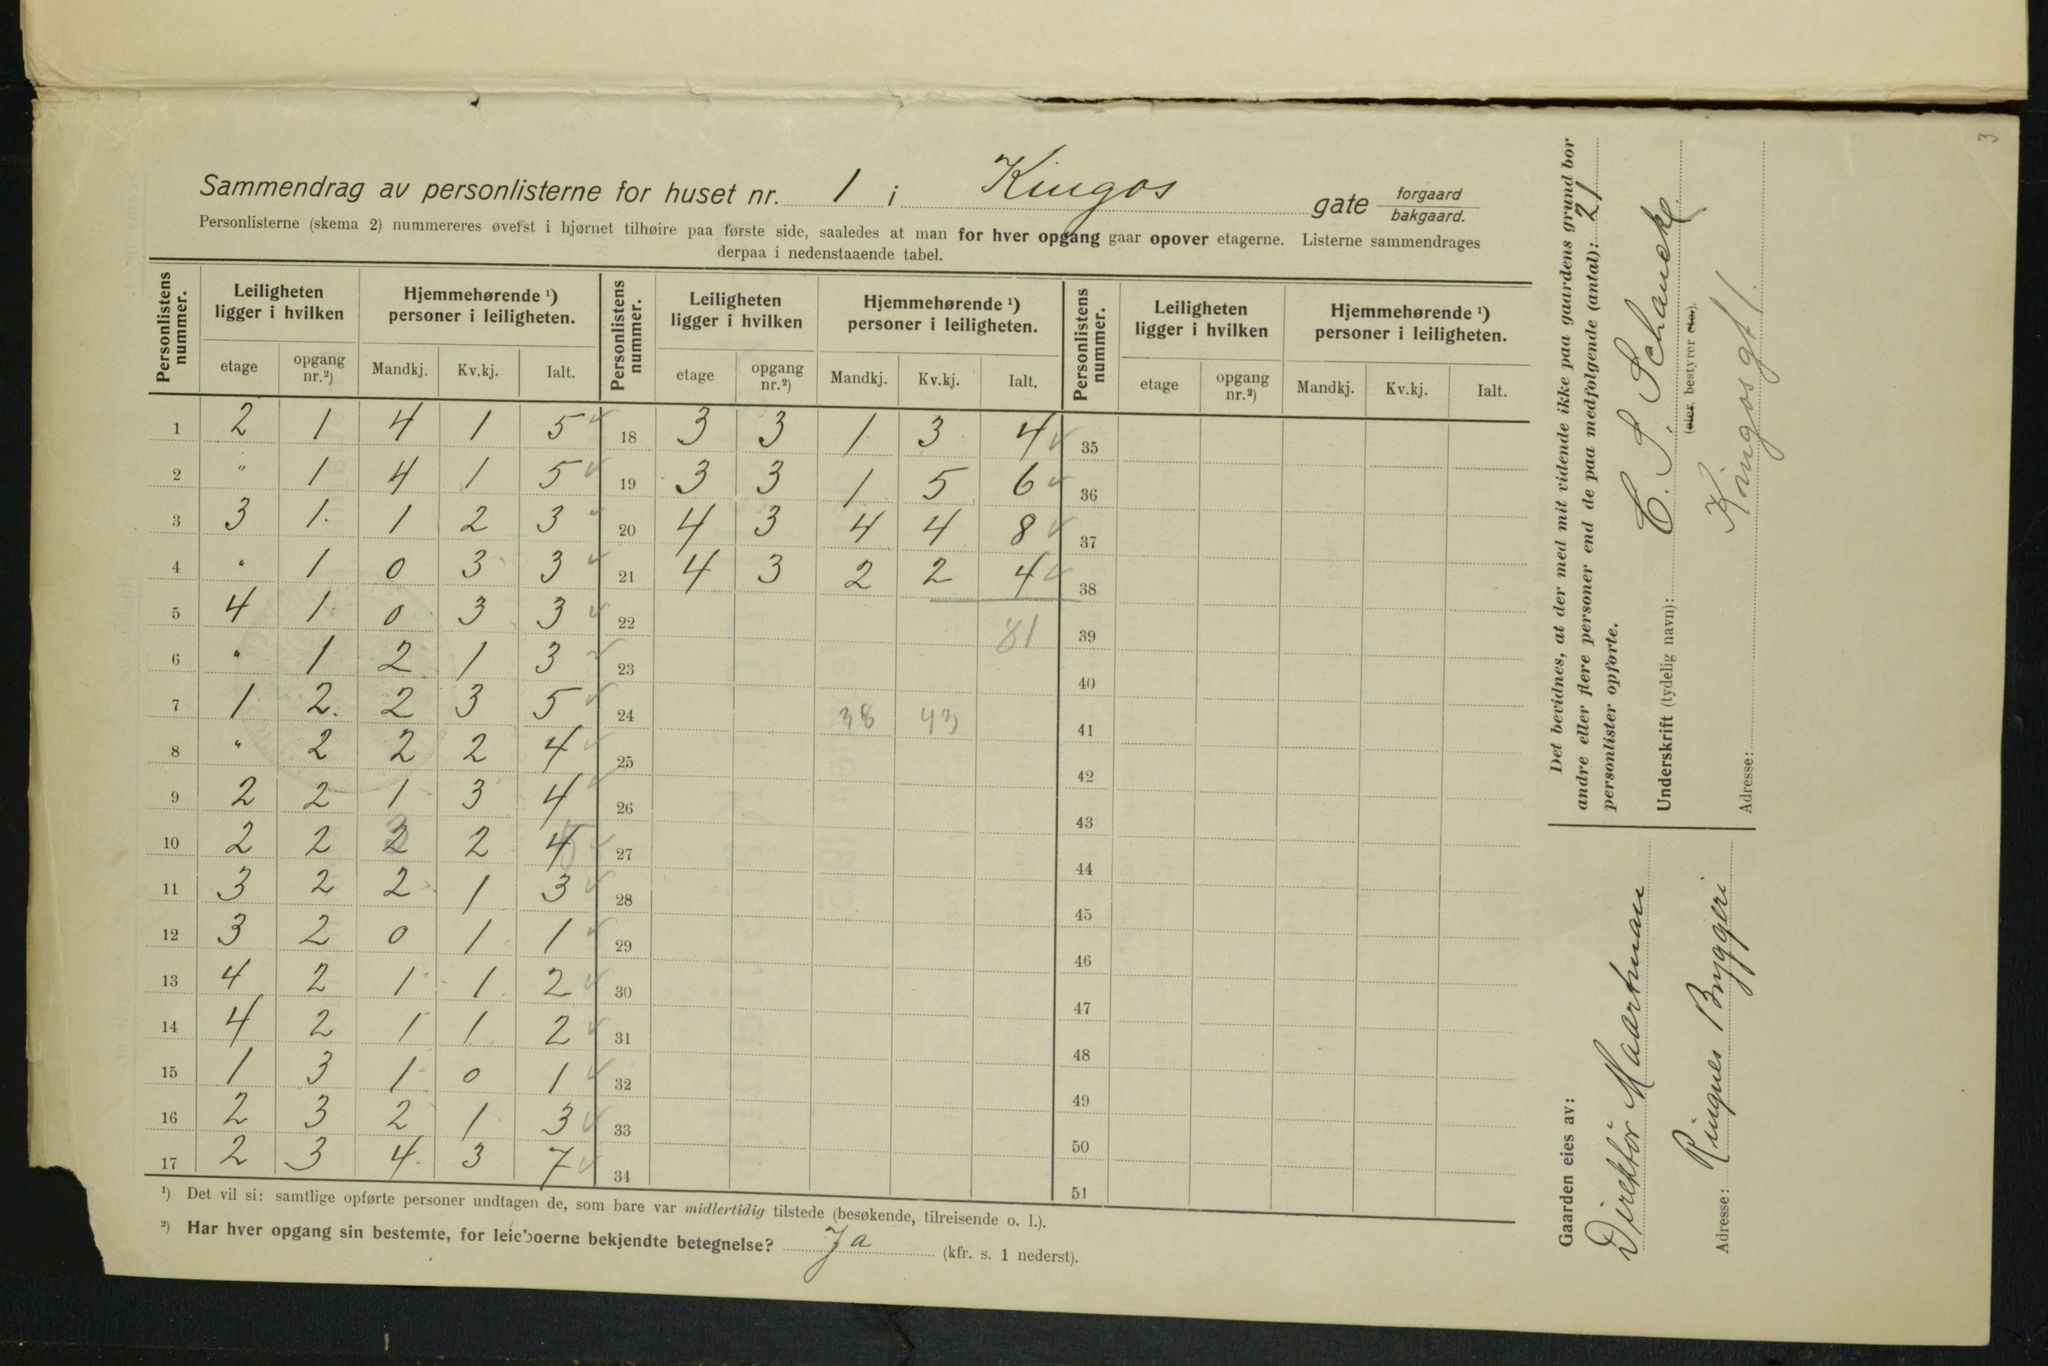 3
Sammendrag av personlisterne for huset nr. 1 i Kingos gate forgaard
bakgaard.
Personlisterne (skema 2) nummereres øverst i hjørnet tilhøire paa første side, saaledes at man for hver opgang gaar opover etagerne. Listerne sammendrages
derpaa i nedenstaaende tabel.
Personlistens nummer. Leiligheten ligger i hvilken Hjemmehørende ¹) personer i leiligheten. Personlistens nummer. Leiligheten ligger i hvilken Hjemmehørende ¹) personer i leiligheten. Personlistens nummer. Leiligheten ligger i hvilken Hjemmehørende ¹) personer i leiligheten.
etage opgang nr.²) Mandkj. Kv.kj. Ialt. etage opgang nr.²) Mandkj. Kv.kj. Ialt. etage opgang nr.²) Mandkj. Kv.kj. Ialt.
1 2 1 4 1 5 ✓ 18 3 3 1 3 4 ✓ 35
2 " 1 4 1 5 ✓ 19 3 3 1 5 6 ✓ 36
3 3 1. 1 2 3 ✓ 20 4 3 4 4 8 ✓ 37
4 " 1 0 3 3 ✓ 21 4 3 2 2 4 ✓ 38
5 4 1 0 3 3 ✓ 22 81 39
6 " 1 2 1 3 ✓ 23 40
7 1 2. 2 3 5 ✓ 24 38 43 41
8 " 2 2 2 4 ✓ 25 42
9 2 2 1 3 4 ✓ 26 43
10 2 2 2 3 2 4 5 ✓ 27 44
11 3 2 2 1 3 ✓ 28 45
12 3 2 0 1 1 ✓ 29 46
13 4 2 1 1 2 ✓ 30 47
14 4 2 1 1 2 ✓ 31 48
15 1 3 1 0 1 ✓ 32 49
16 2 3 2 1 3 ✓ 33 50
17 2 3 4 3 7 ✓ 34 51
¹) Det vil si: samtlige opførte personer undtagen de, som bare var midlertidig tilstede (besøkende, tilreisende o. l.).
²) Har hver opgang sin bestemte, for leieboerne bekjendte betegnelse? Ja (kfr. s. 1 nederst).
Gaarden eies av:
Direktør Maartman
Adresse: Ringnes Bryggeri
Det bevidnes, at der med mit vidende ikke paa gaardens grund bor
andre eller flere personer end de paa medfølgende (antal): 21
personlister opførte.
Underskrift (tydelig navn): C. S. Schanckl
(eier, bestyrer etc).
Adresse: Kingosgt 1.